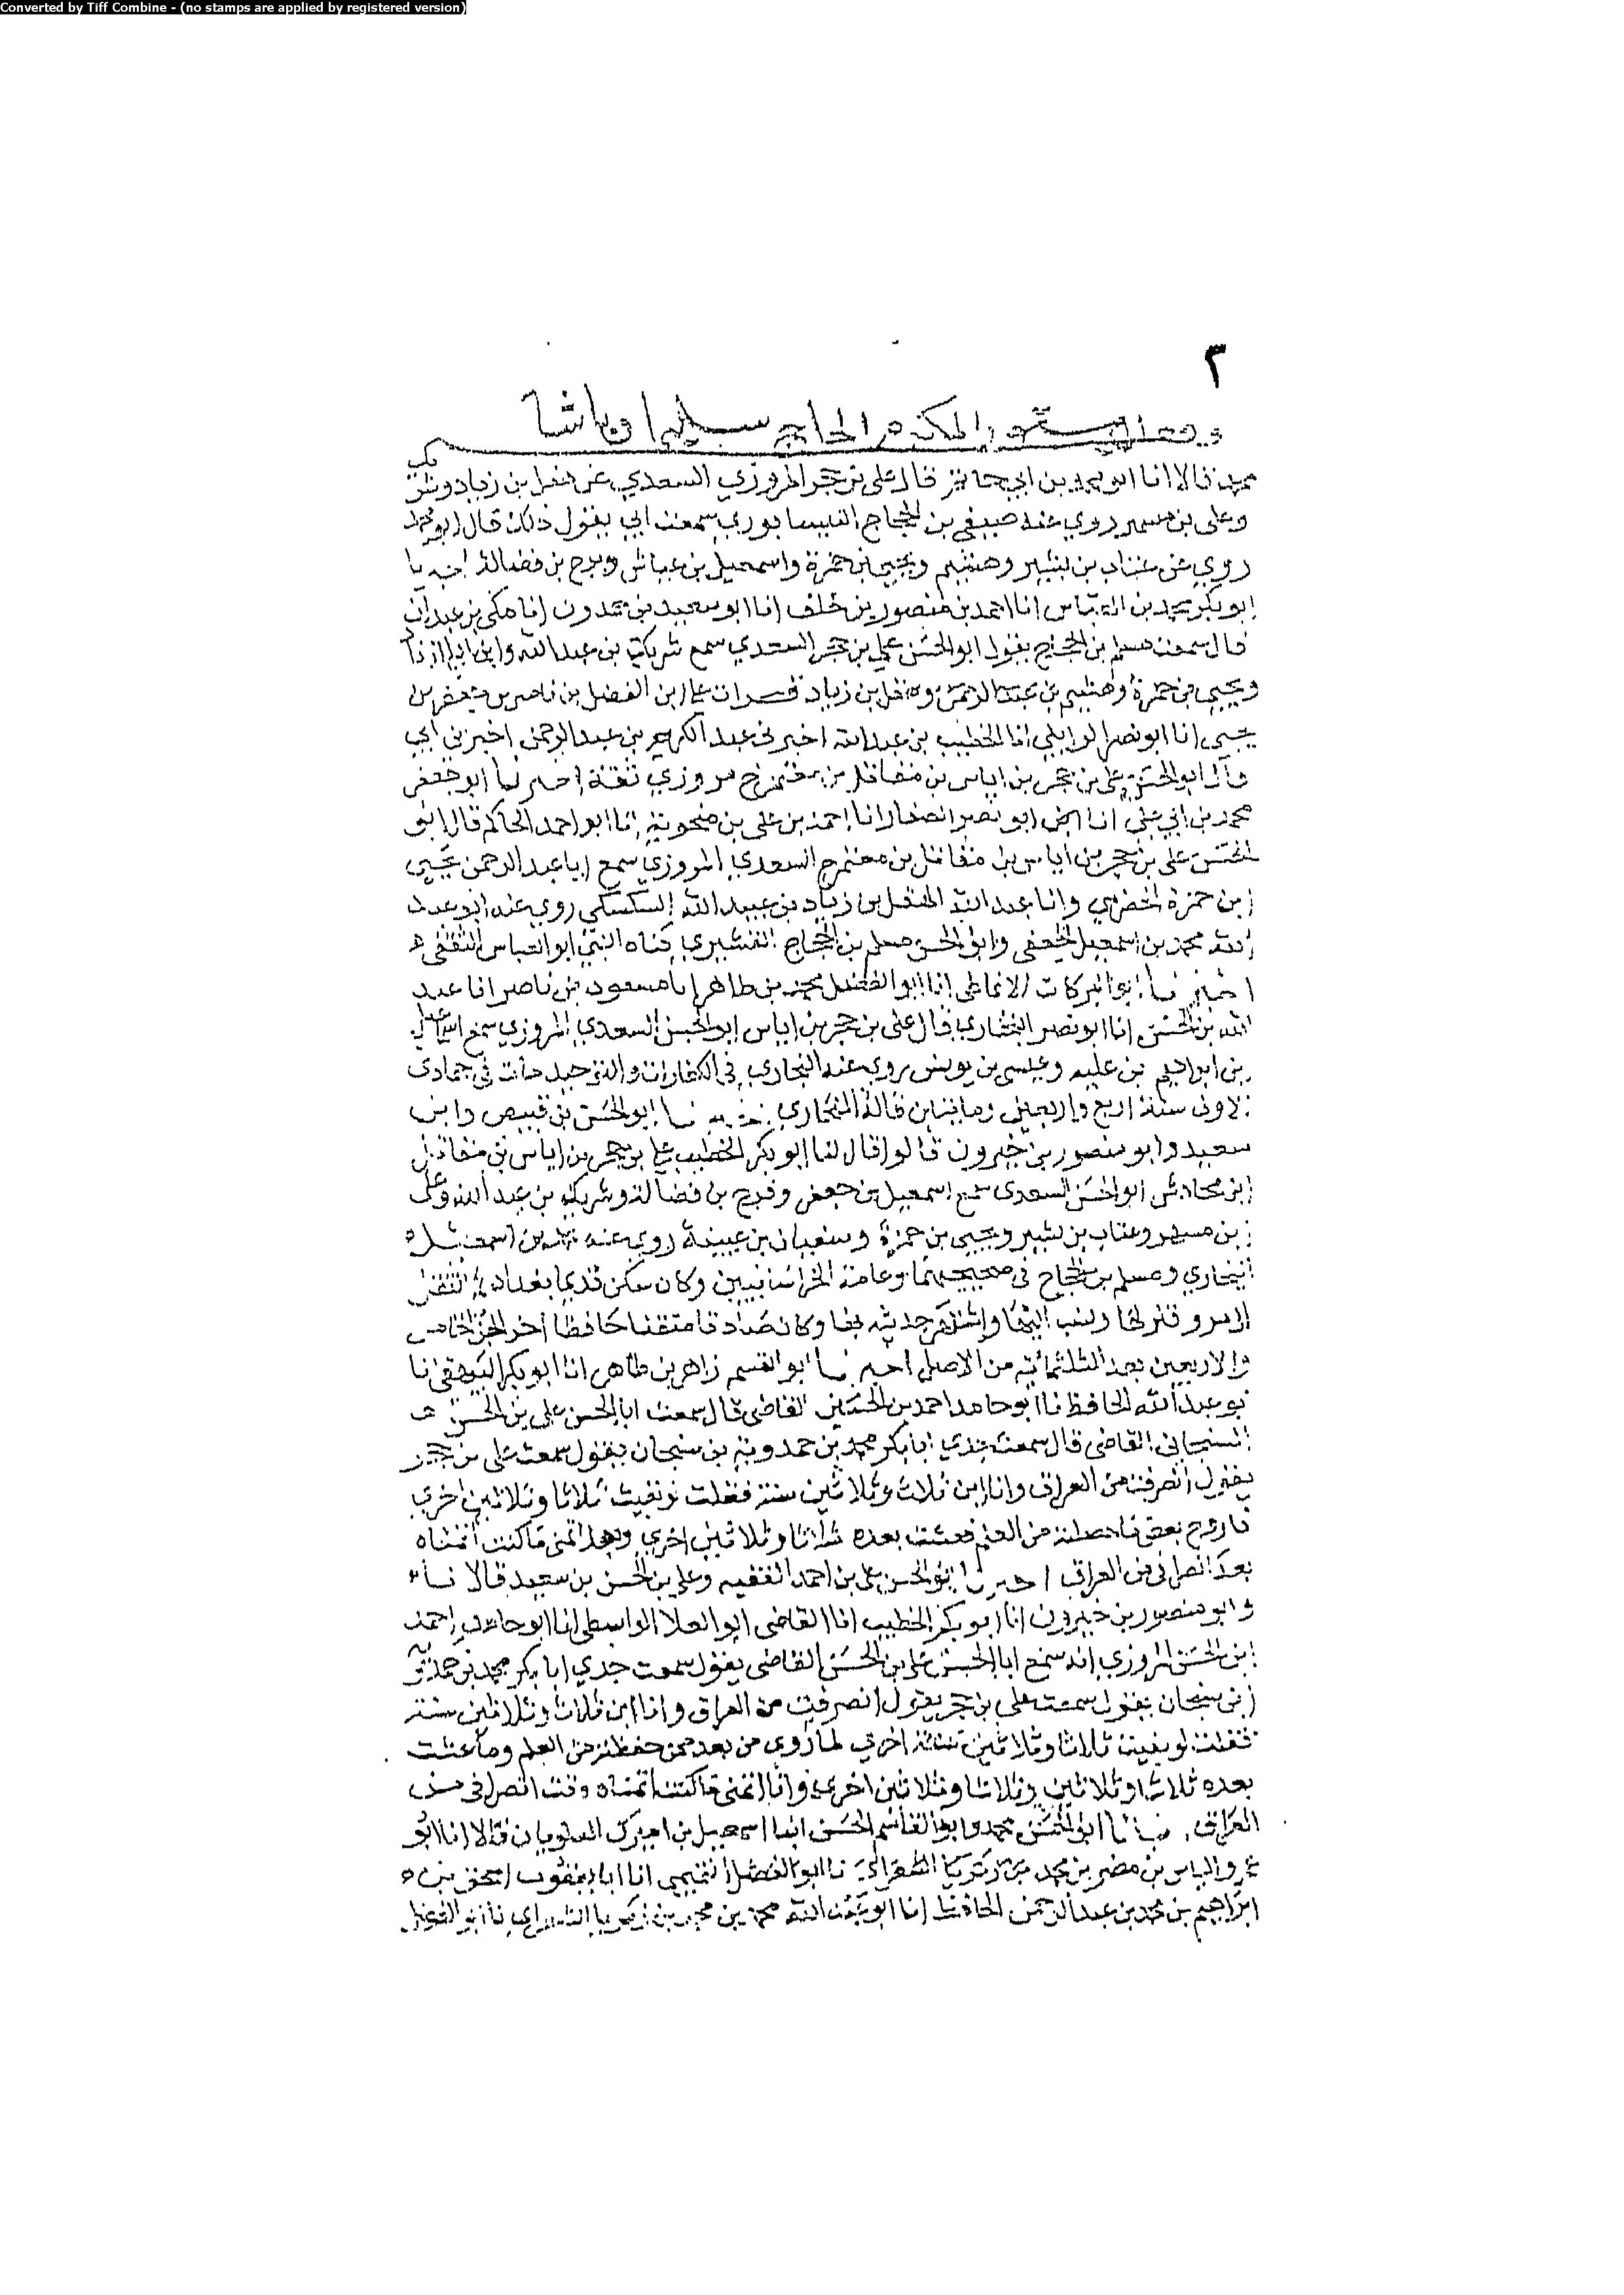 Converted by Tiff Combine - (no stamps are applied by registered version)
٣
الحاج سليمان باشا
محمد قالا انا ابو محمد بن ابي حاتم قال علي بن حجر المروزي السعدي عن هقل بن زياد وشريك
وعلي بن مسهر روي عنه صيفي بن الحجاج النيسابوري سمعت ابي يقول ذلك قال ابو محمد
روي عن عتاب بن بشير وهشيم ويحيى بن حمزة واسمعيل بن عياش وفرج بن فضالة اخبرنا
ابو بكر محمد بن العباس انا احمد بن منصور بن خلف انا ابو سعيد بن حمدون انا مكي بن عبدان
قال سمعت مسلم بن الحجاج يقول ابو الحسن علي بن حجر السعدي سمع شريك بن عبد الله وابن ابي الزناد
ويحيى بن حمزة وهشيم بن وهقل بن زياد قرات علي ابن الفضل بن ناصر بن جعفر بن
يحيى انا ابو نصر الوايلي انا الخطيب بن عبد الله اخبرني عبد الكريم بن عبد الرحمن اخبرني ابي
قال ابو الحسن علي بن حجر بن اياس بن مقاتل بن مروزي ثقة اخبرنا ابو جعفر
محمد بن ابي علي انا ابو بكر الصفار انا احمد بن علي بن منجويه انا ابو احمد الحاكم قال ابو
الحسن علي بن حجر بن اياس بن مقاتل بن السعدي المروزي سمع ابا عبد الرحمن يحيى
ابن حمزة الحضرمي وابا عبد الله الهقل بن زياد بن عبيد الله السكسكي روي عنه ابو عبد
الله محمد بن اسمعيل الجعفي وابو الحسن مسلم بن الحجاج القشيري كناه ابو العباس الثقفي
اخبرنا ابو البركات الانماطي انا ابو الفضل محمد بن طاهر انا مسعود بن ناصر انا عبد
الله بن الحسن انا ابو نصر البخاري قال علي بن حجر بن اياس ابو الحسن السعدي المروزي سمع اسماعيل
بن ابراهيم بن عليه وعيسى بن يونس روي عنه البخاري في الكفارات والتوحيد مات في جمادى
الاولى سنة اربع واربعين ومايتين قاله البخاري ابو الحسن بن قبيس وابن
سعيد وابو منصور بن خيرون قالوا قال لنا ابو بكر الخطيب علي بن حجر بن اياس بن مقاتل
ابن مخادش ابو الحسن السعدى سمع اسمعيل بن جعفر وفرج بن فضالة وشريك بن عبد الله وعلي
بن مسهر وعتاب بن بشير ويحيى بن حمزة وسفيان بن عيينة روي عنه محمد بن اسمعيل
البخاري ومسلم بن الحجاج في صحيحيهما وعامة الخراسانيين وكان سكن قديما بغداد ثم انتقل
الى مرو فنزلها ونسب اليها واشتهر حديثه بها وكان صادقا متقنا حافظا اخر الجزء الخامس
والاربعين بعد الثلثمائة من الاصل اخبرنا ابو القسم زاهر بن طاهر انا ابو بكر البيهقي انا
ابو عبد الله الحافظ نا ابو حامد احمد بن الحسين القاضي قال سمعت ابا الحسن علي بن الحسن
السنجاني القاضي قال سمعت جدي ابا بكر محمد بن حمدويه بن سنجان يقول سمعت علي بن حجر
يقول انصرفت من العراق وانا ابن ثلاث وثلاثين سنة فقلت لو بقيت ثلاثا وثلاثين اخري
فاروح بعض ما حصلته من العلم فعشت بعده ثلاثا وثلاثين اخري وبعد اتمنى ما كنت اتمناه
بعد انصرافي من العراق اخبرنا ابو الحسن علي بن احمد الفقيه وعلي بن الحسن بن سعيد قالا نا
وابو منصور بن خيرون انا ابو بكر الخطيب انا القاضي ابو العلا الواسطي انا ابو حامد احمد
ابن الحسن المروزي انه سمع ابا الحسن علي بن الحسن القاضي يقول سمعت جدي ابا بكر محمد بن حمدويه
بن سنجان يقول سمعت علي بن حجر يقول انصرفت من العراق وانا ابن ثلاث وثلاثين سنة
فقلت لو بقيت ثلاثا وثلاثين سنة اخري من بعد العلم وما عشت
بعده ثلاثا وثلاثين وثلاثا وثلاثين اخري وانا اتمنى ما كنت اتمناه وقت انصرافي من
العراق ابو الحسن محمد وابو القاسم الحسن ابنا اسمعيل بن اميرك العلويان قالا انا ابو
عمرو الياس بن مضر بن محمد بن زكريا نا ابو الفضل التميمي انا ابا يعقوب اسحق بن
ابراهيم بن محمد بن عبد الرحمن الحافظ انا ابو عبد الله محمد بن محمد بن زكريا نا ابو الفضل